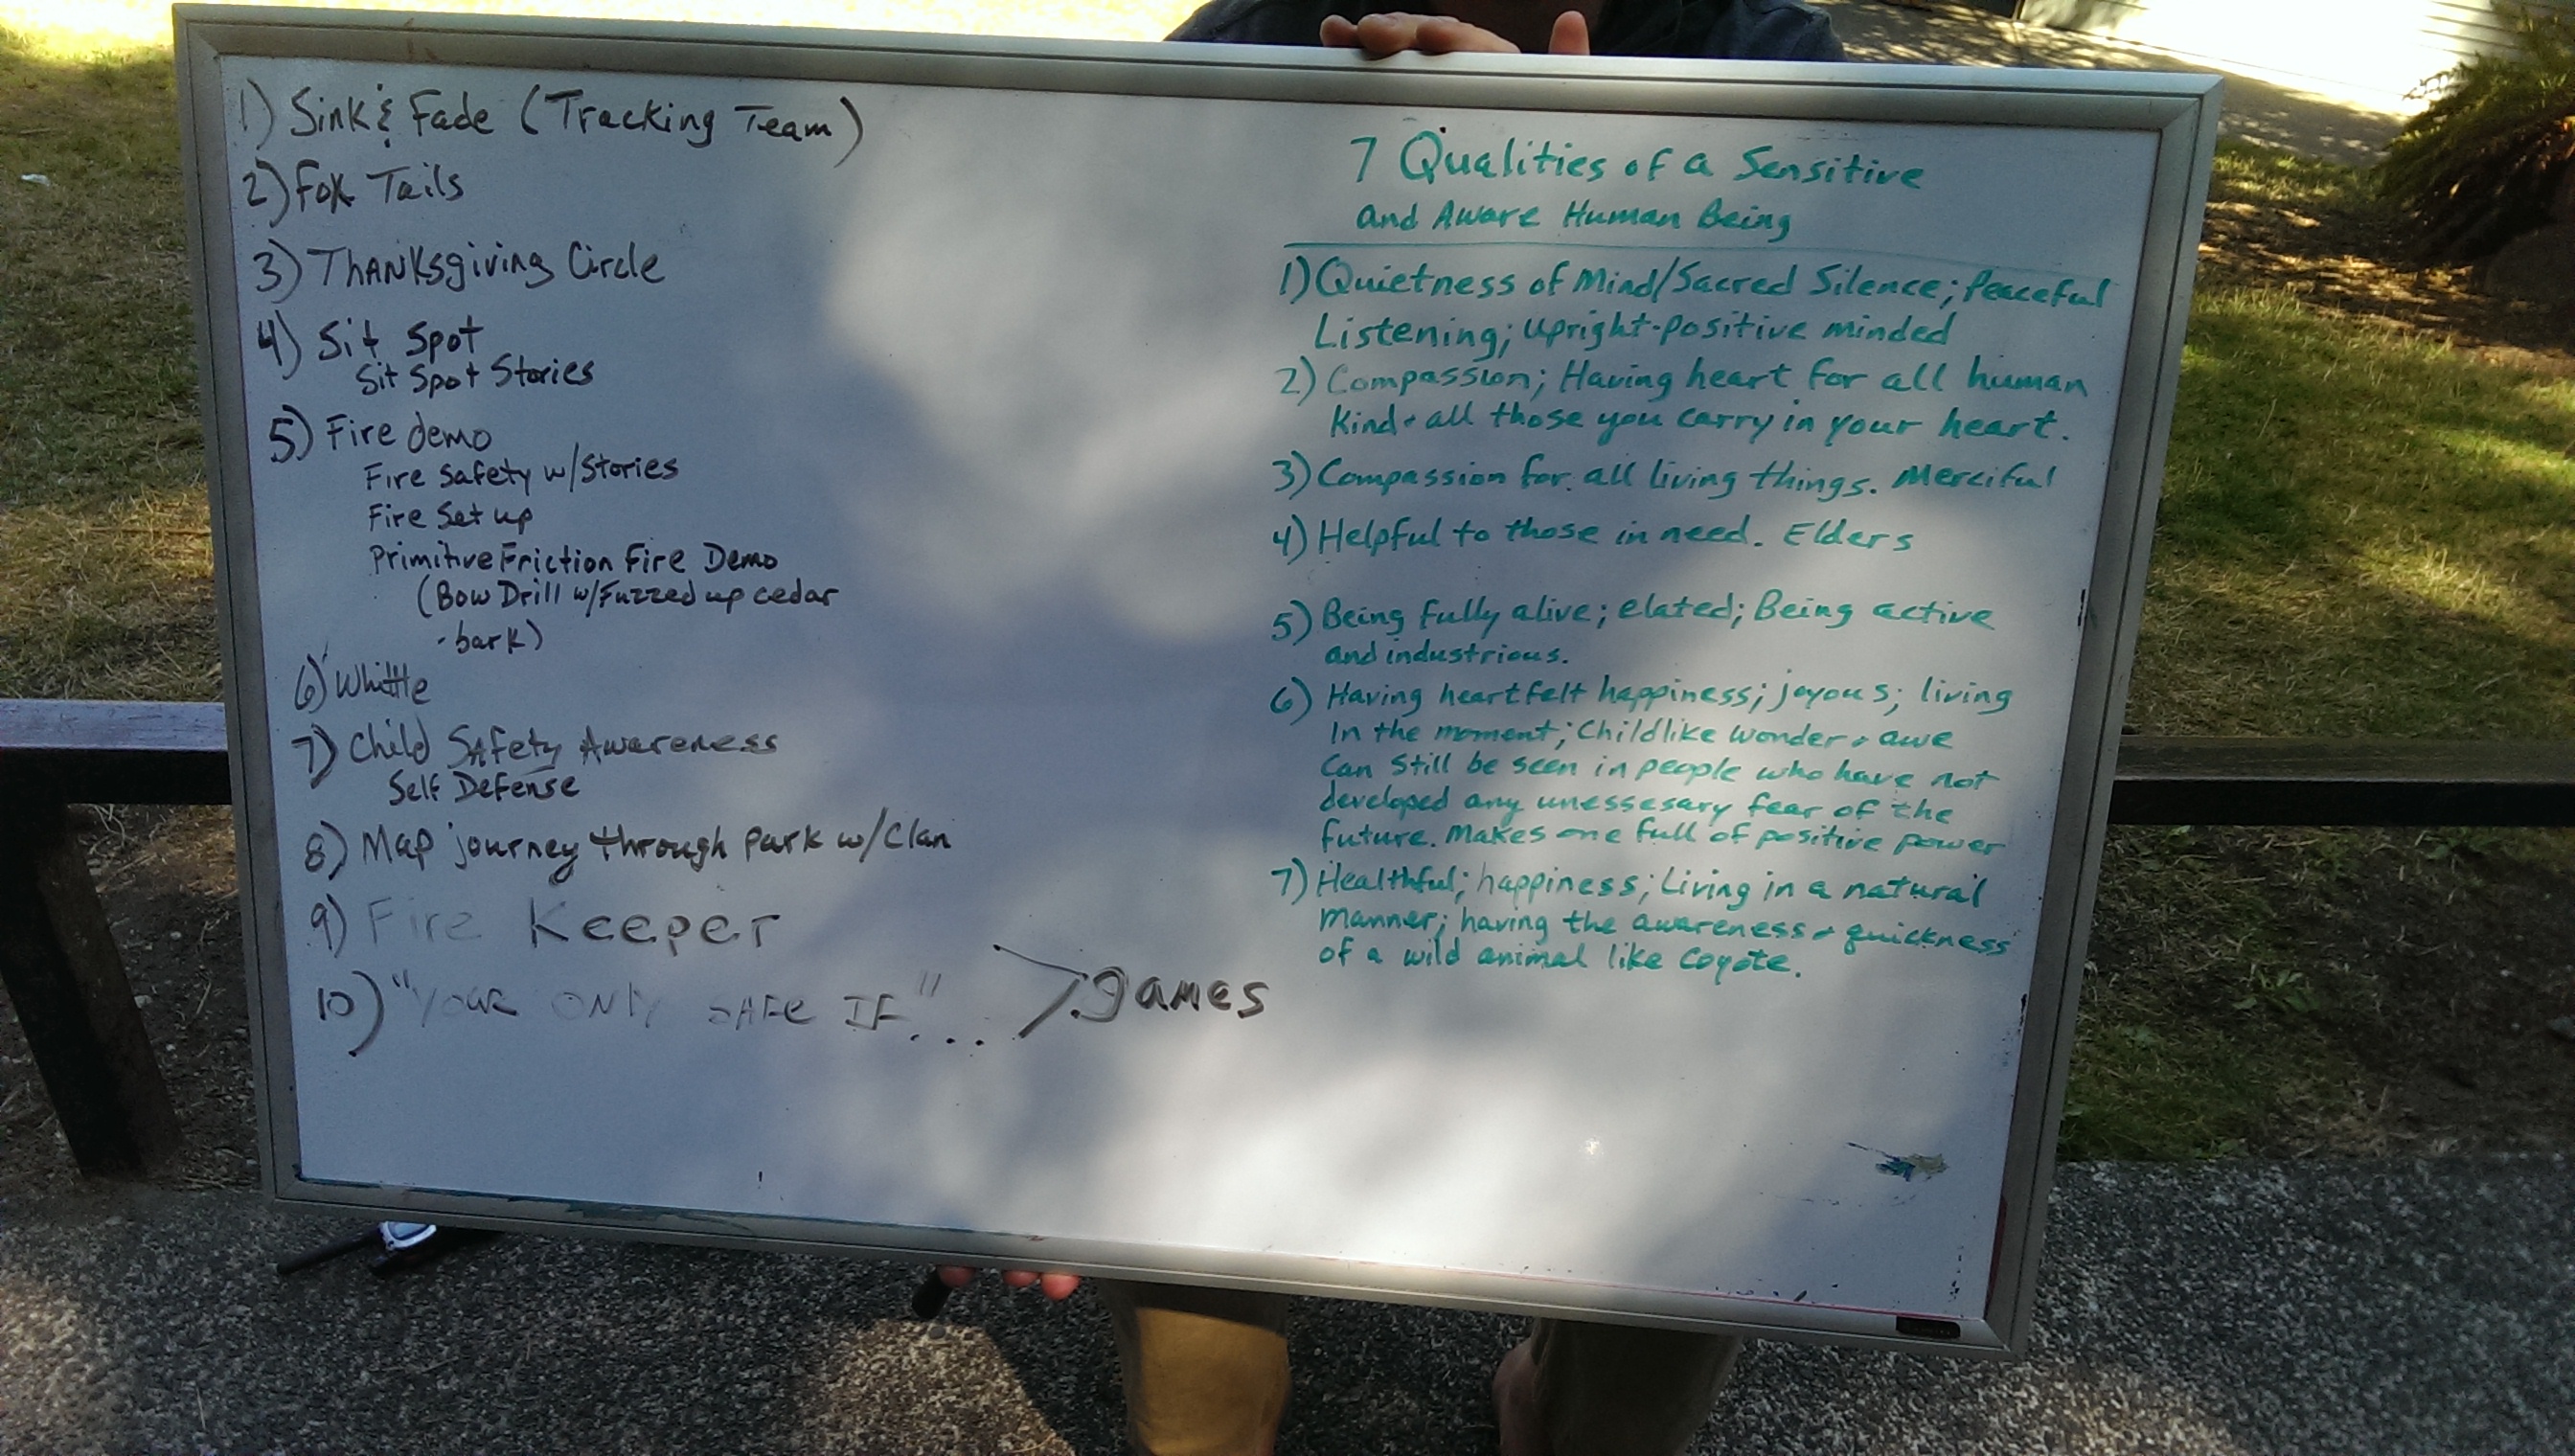 1) Sink & Fade (Tracking Team)
2) Fox Tails
3) Thanksgiving Circle
4) Sit Spot
Sit Spot Stories
5) Fire demo
Fire Safety w/Stories
Fire Set up
Primitive Friction Fire Demo
(Bow Drill w/Fuzzed up cedar
-bark)
6) Whittle
7) Child Safety Awareness
Self Defense
8) Map journey through park w/Clan
9) Fire Keeper
10) "Your ONly SAFe IF"...
> games
7 Qualities of a Sensitive
and Aware Human Being
1) Quietness of Mind/Sacred Silence; Peaceful
Listening; upright-positive minded
2) Compassion; Having heart for all human
kind + all those you carry in your heart.
3) Compassion for all living things. Merciful
4) Helpful to those in need. Elders
5) Being fully alive; elated; Being active
and industrious.
6) Having heartfelt happiness; joyous; living
In the moment; Childlike wonder + awe
Can Still be seen in people who have not
developed any unessesary fear of the
future. Makes one full of positive power
7) Healthful; happiness; Living in a natural
manner; having the awareness + quickness
of a wild animal like coyote.